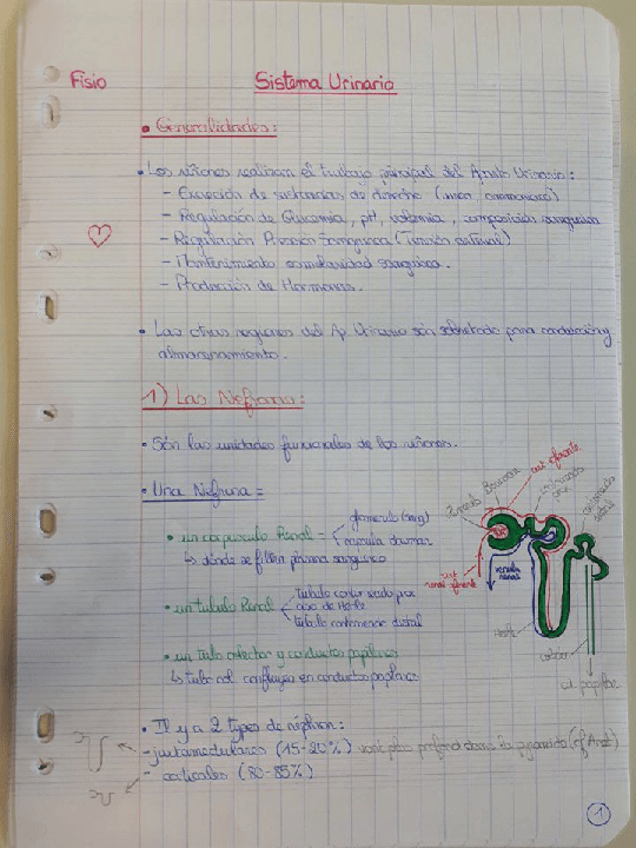 Fisio
Sistema Urinario
• Generalidades:
• Los riñones realizan el trabajo principal del Aparato Urinario:
- Excreción de sustancias de desecho (urea, ammoniaco)
- Regulación de Glucemia, pH, volemia, composición sanguínea
- Regulación Presión Sanguínea (Tensión arterial)
- Mantenimiento osmolaridad sanguínea.
- Producción de Hormonas.
• Las otras regiones del Ap Urinario son sobretodo para conducción y
almacenamiento.
1) Las Nefrona:
• Són las unidades funcionales de los riñones.
• Una Nefrona =
• un corpusculo Renal =
glomerulo (sang)
capsula
↳ dónde se filtra plasma sanguíneo
• un tubulo Renal
tubulo contorneado prox
asa de Henle
tubulo contorneado distal
• un tubo colector y conductos papilares
↳ tubo col confluyen en conductos papilares
• Il y a 2 types de néphron:
- juxtamedulares (15-20%) vont plus profond dans la pyramide (cf Anat)
- corticales (80-85%)
Bowman
art eferente
contorneado
prox
contorneado
distal
art
aferente
venula
renal
Henle
colector
cd. papilar
1